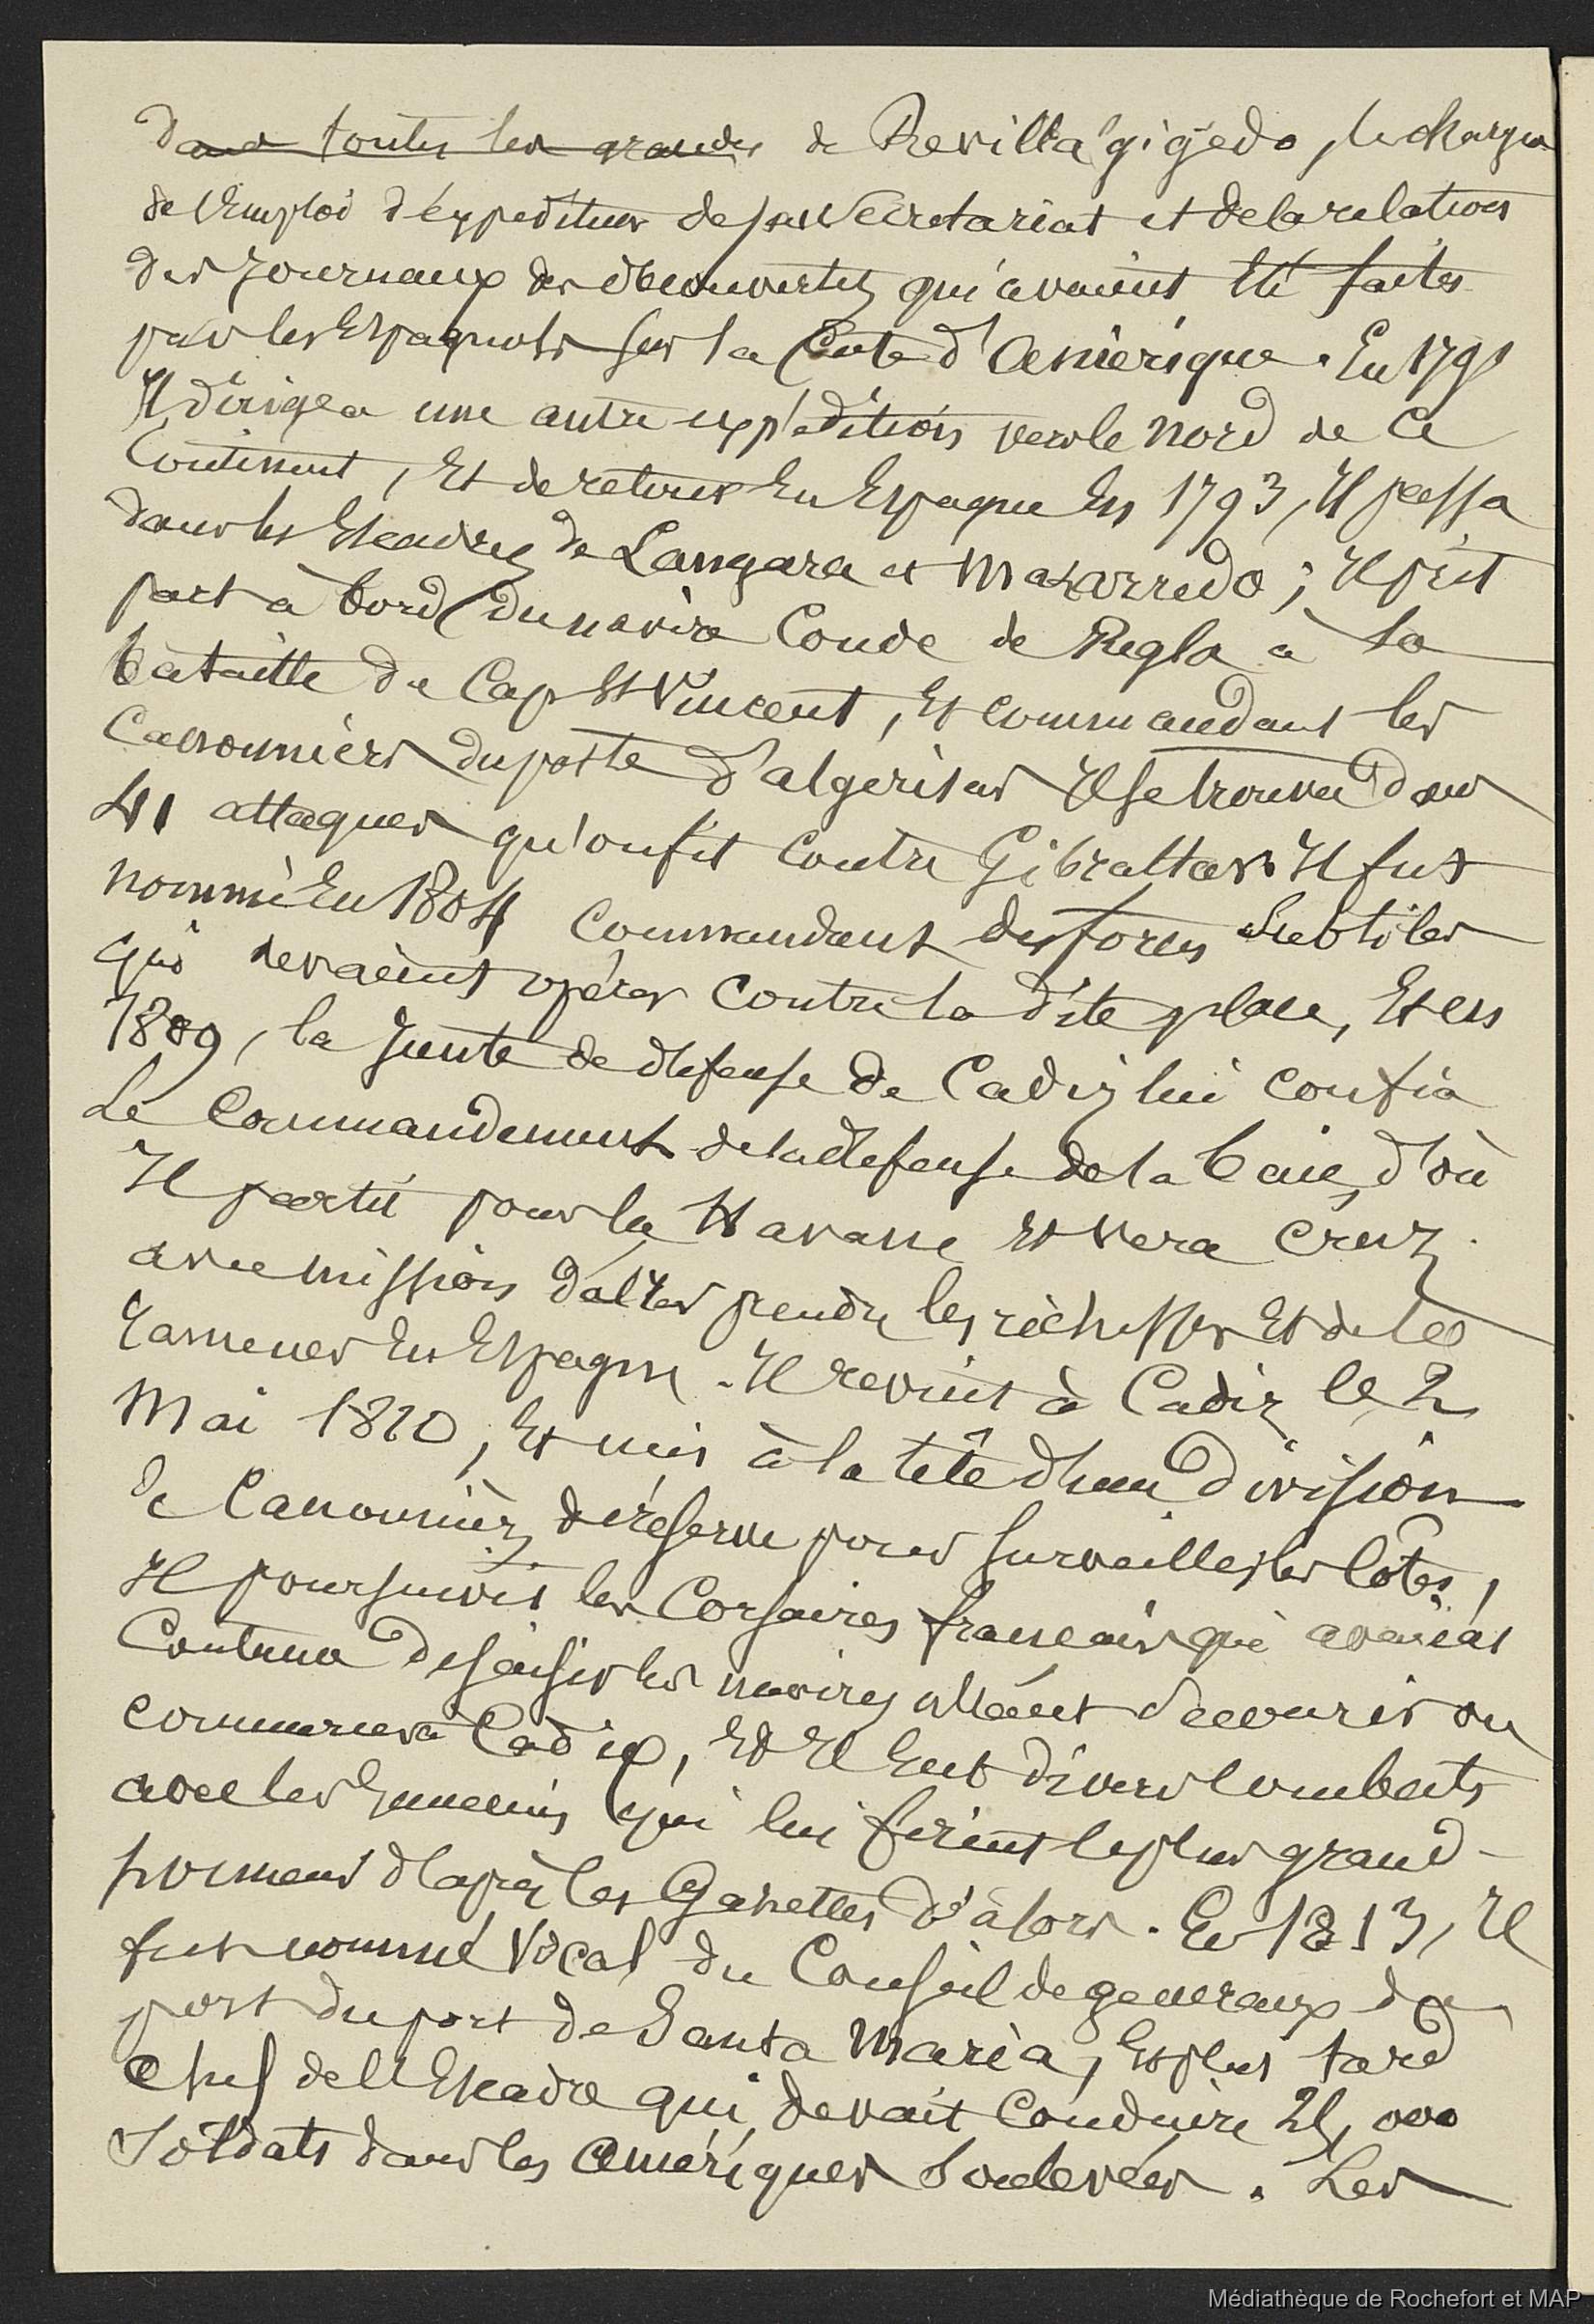 dans toutes les grandes de Revilla gigedo, le chargea
de l'emploi d'expediteur de son Secretariat et de la relation
des Journaux des decouvertes qu'avaient été faites
par les Espagnols sur la Cote d'Amérique. En 1791
Il dirigea une autre expédition vers le nord de ce
Continent, Et de retour En Espagne En 1793, Il passa
dans les Escadres de Langara et Mazarredo; Il prit
part à bord du navire Conde de Regla à la
bataille du Cap St Vincent, Et commandant les
Canonnières du poste d'algerisas Il se trouva dans
41 attaques qu'on fit contre Gibraltar. Il fut
nommé En 1804 Commandant des forces Subtiles
qui devaient opérer contre la dite place, Et en
1809, la Junte de défense de Cadiz lui confia
Le Commandement de la défense de la baie, d'où
Il partit pour la Havane Et Vera Cruz
avec mission d'aller prendre les richesses Et de les
ramener En Espagne. Il revint à Cadiz le 2
Mai 1810, Et mis à la tête d'une division
de Canonnières de réserve pour surveiller les Côtes,
Il poursuivit les Corsaires français qui avaient
Coutume de saisir les navires allant secourir ou
commercer à Cadix, Et Il Eut divers combats
avec les Ennemis qui lui firent le plus grand
honneur d'après les Gazettes d'alors. En 1813, Il
fut nommé Vocal du Conseil de generaux du
port du port de Santa Maria, Et plus tard
Chef de l'Escadre qui devait conduire 25,000
Soldats dans les Amériques Soulevées. Les
Médiathèque de Rochefort et MAP